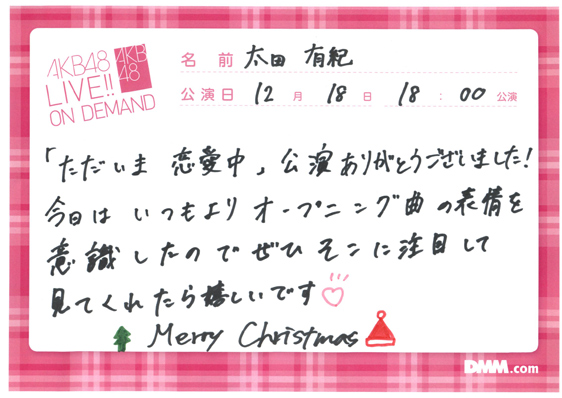 AKB48
LIVE!!
ON DEMAND
AKB
48
名前 太田 有紀
公演日 12月 18日 18:00公演
「ただいま 恋愛中」公演ありがとうございました!
今日は いつもより オープニング曲の表情を
意識したので ぜひ そこに注目して
見てくれたら嬉しいです♡
Merry Christmas
DMM.com